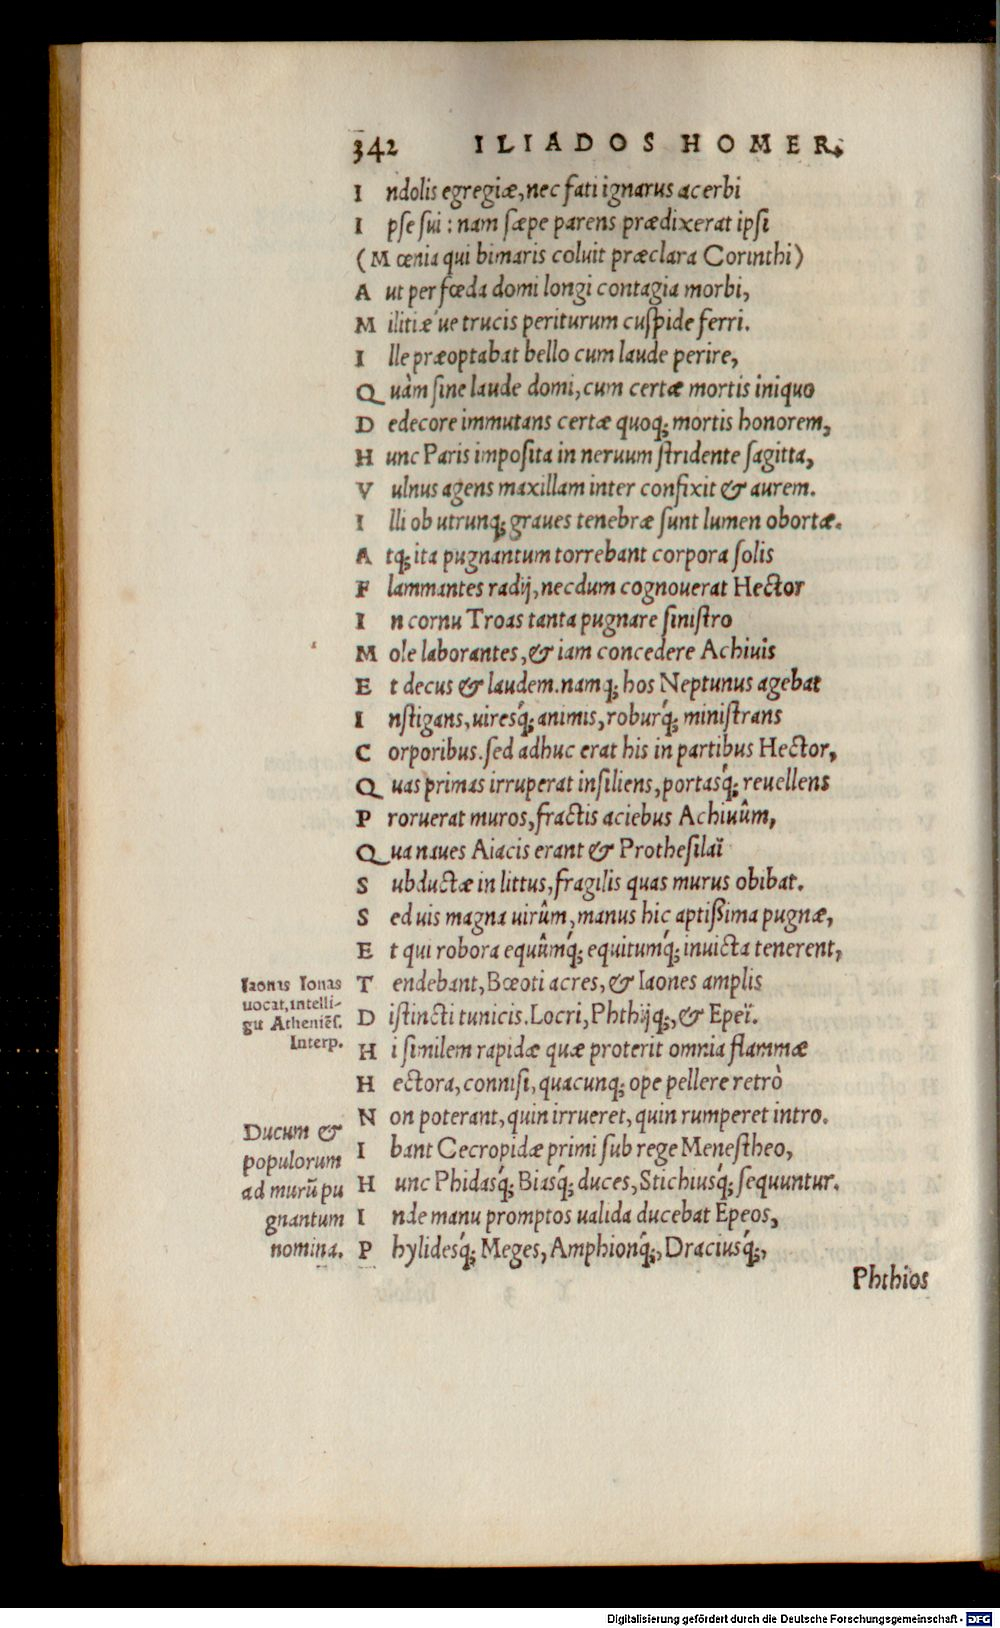 342 ILIADOS HOMER.
Indolis egregiæ, nec fati ignarus acerbi
Ipse sui: nam sæpe parens prædixerat ipsi
(Mœnia qui bimaris coluit præclara Corinthi)
Aut per fœda domi longi contagia morbi,
Militiæ´ue trucis periturum cuspide ferri.
Ille præoptabat bello cum laude perire,
Quàm sine laude domi, cum certæ mortis iniquo
Dedecore immutans certæ quoq; mortis honorem,
Hunc Paris imposita in neruum stridente sagitta,
Vulnus agens maxillam inter confixit & aurem.
Illi ob utrunq; graues tenebræ sunt lumen obortæ.
Atq; ita pugnantum torrebant corpora solis
Flammantes radij, necdum cognouerat Hector
In cornu Troas tanta pugnare sinistro
Mole laborantes, & iam concedere Achiuis
Et decus & laudem. namq; hos Neptunus agebat
Instigans, uiresq́; animis, roburq́; ministrans
Corporibus. sed adhuc erat his in partibus Hector,
Quas primas irruperat insiliens, portasq́; reuellens
Proruerat muros, fractis aciebus Achiuûm,
Qua naues Aiacis erant & Prothesilaï
Subductæ in littus, fragilis quas murus obibat.
Sed uis magna uirûm, manus hic aptißima pugnæ,
Et qui robora equûmq́; equitumq́; inuicta tenerent,
Tendebant, Bœoti acres, & Iaones amplis
Distincti tunicis. Locri, Phthijq;, & Epeï.
Hi similem rapidæ quæ proterit omnia flammæ
Hectora, connisi, quacunq; ope pellere retrò
Non poterant, quin irrueret, quin rumperet intro.
Ibant Cecropidæ primi sub rege Menestheo,
Hunc Phidasq́; Biasq́; duces, Stichiusq́; sequuntur.
Inde manu promptos ualida ducebat Epeos,
Phylidesq́; Meges, Amphionq́;, Draciusq́;,
Phthios
Iaonas Ionas
uocat, intelli-
git Atheniẽs.
Interp.
Ducum &
populorum
ad murũ pu
gnantum
nomina.
Digitalisierung gefördert durch die Deutsche Forschungsgemeinschaft - DFG